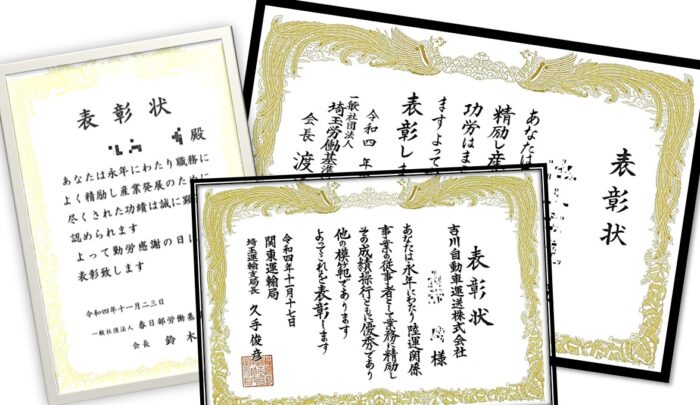 表彰状
殿
あなたは永年にわたり職務に
よく精励し産業発展のために
尽くされた功績は誠に顕
認められます
よって勤労感謝の日に
表彰致します
令和四年十一月二三日
一般社団法人 春日部労働基
会長 鈴木
表彰状
あなたは
精励し産
功労はま
ますよって
表彰しま
令和四年
一般社団法人
埼玉労働基準
会長 渡
表彰状
吉川自動車運送株式会社
様
あなたは永年にわたり陸運関係
事業の従事者として業務に精励し
その成績操行ともに優秀であり
他の模範であります
よってこれを表彰します
令和四年十一月十七日
関東運輸局
埼玉運輸支局長 久手俊彦